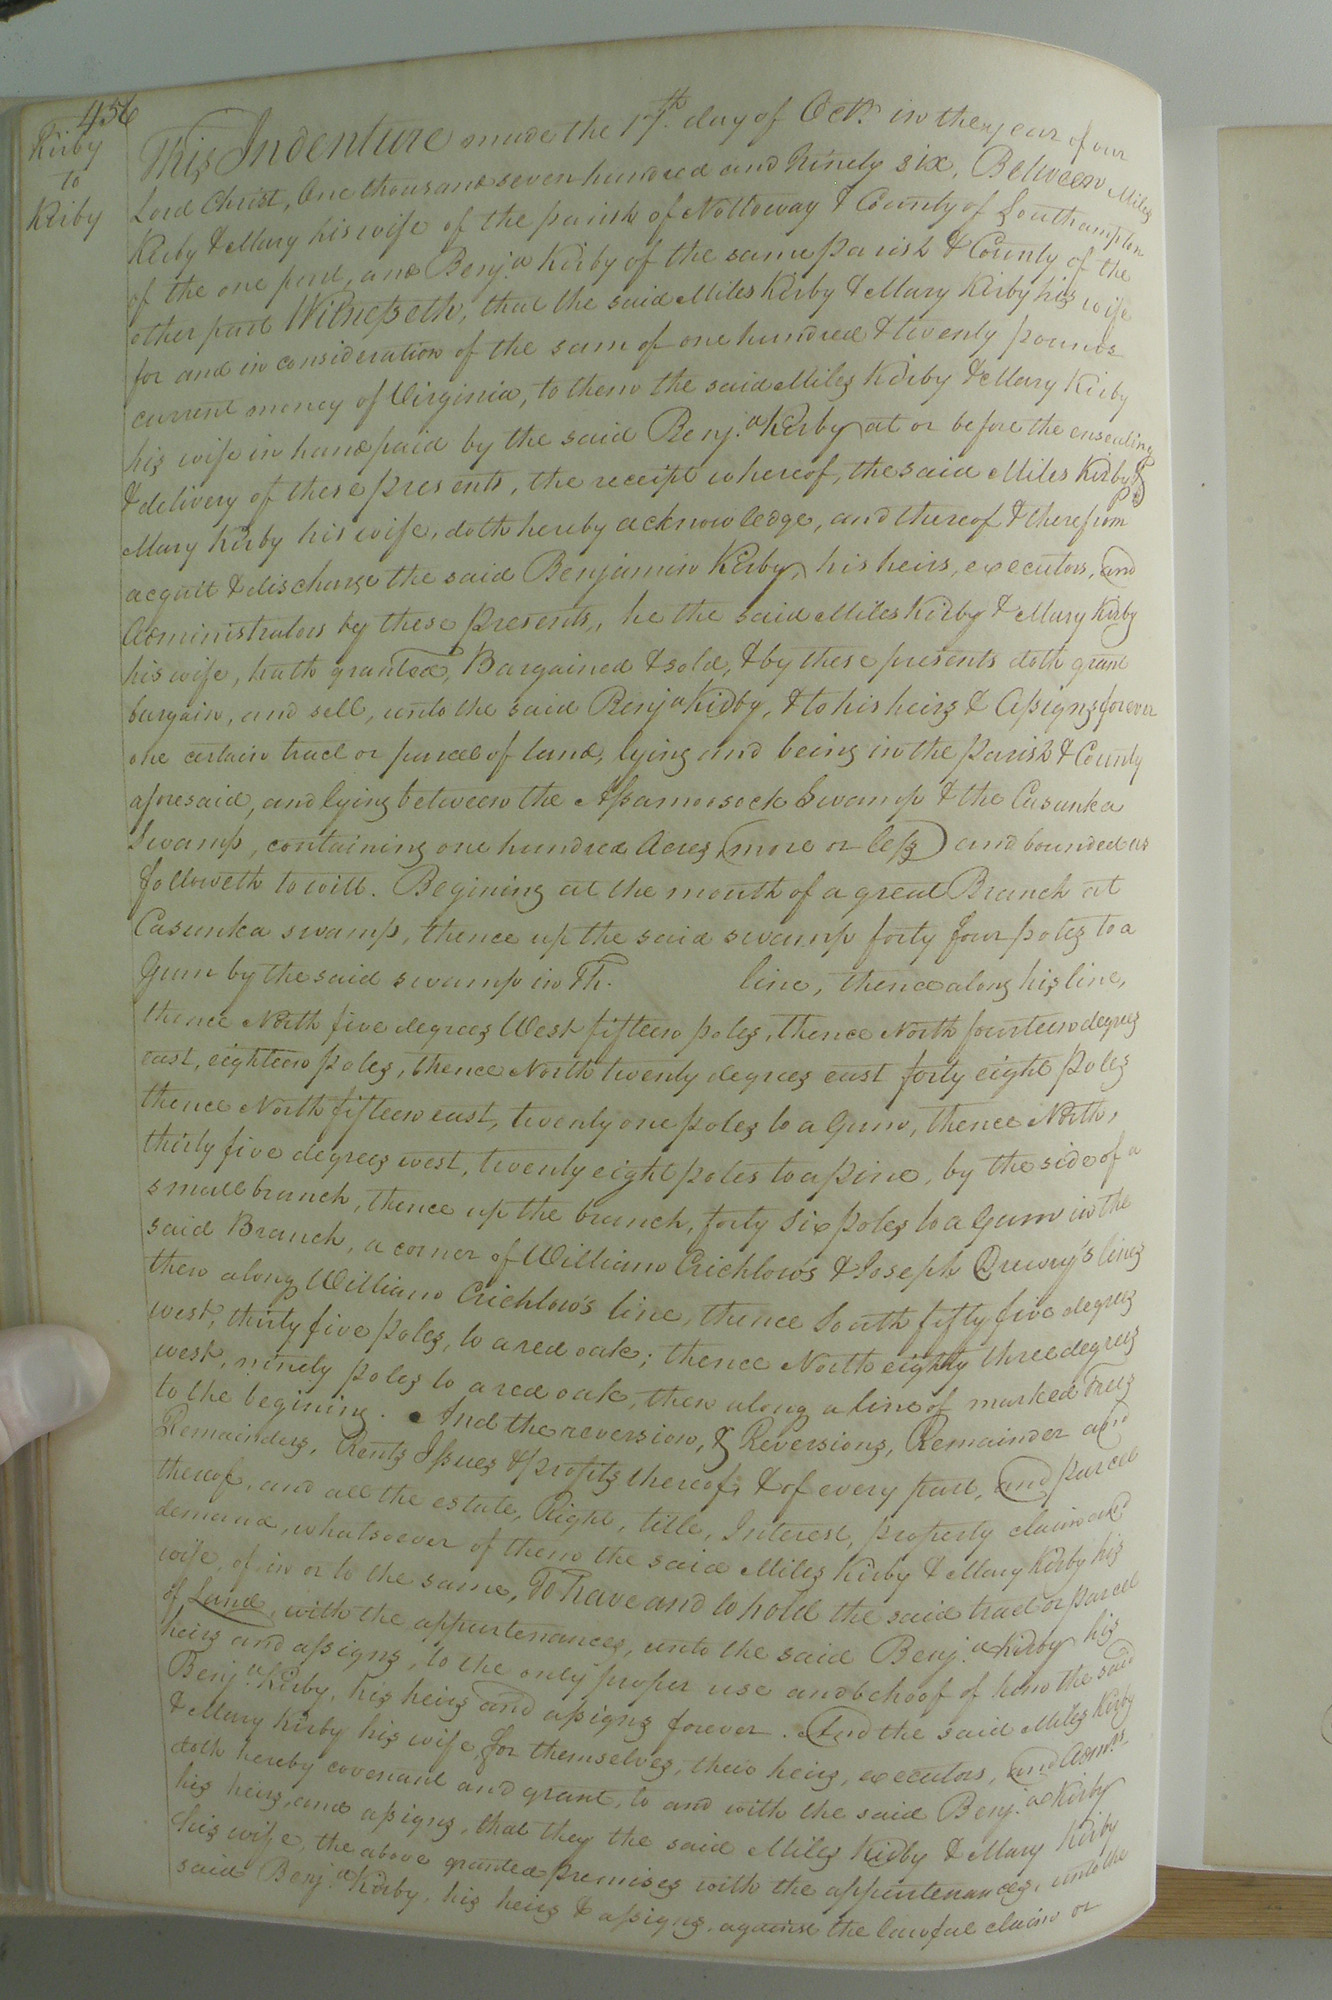 456
Kirby
to
Kirby
This Indenture made the 17th day of Octr. in the year of our
Lord Christ, One thousand seven hundred and Ninety six, Between Miles
Kirby & Mary his wife of the parish of Nottoway & County of Southampton
of the one part, and Benja. Kirby of the same parish & County of the
other part Witnesseth, that the said Miles Kirby & Mary Kirby his wife
for and in consideration of the sum of one hundred & twenty pounds
current money of Virginia, to them the said Miles Kirby & Mary Kirby
his wife in hand paid by the said Benja. Kirby at or before the ensealing
& delivery of these presents, the receipt whereof, the said Miles Kirby &
Mary Kirby his wife, doth hereby acknowledge, and thereof & therefrom
acquit & discharge the said Benjamin Kirby, his heirs, executors, and
Administrators by these presents, he the said Miles Kirby & Mary Kirby
his wife, hath granted, Bargained & sold, & by these presents doth grant
bargain, and sell, unto the said Benja Kirby, & to his heirs & Assigns forever
one certain tract or parcel of land, lying and being in the parish & County
aforesaid, and lying between the Assamoosock Swamp & the Casunka
Swamp, containing one hundred Acres (more or less) and bounded as
followeth to witt. Begining at the mouth of a great Branch at
Casunka swamp, thence up the said swamp forty four poles to a
Gum by the said swamp in Th. line, thence along his line,
thence North five degrees West fifteen poles, thence North fourteen degrees
east, eighteen poles, thence North twenty degrees east forty eight poles
thence North fifteen east, twenty one poles to a Gum, thence North,
thirty five degrees west, twenty eight poles to a pine, by the side of a
small branch, thence up the branch, forty six poles to a Gum in the
said Branch, a corner of William Crichlow's & Joseph Drewry's lines
then along William Crichlow's line, thence South fifty five degrees
west, thirty five poles, to a red oak; thence North eighty three degrees
west, ninety poles to a red oak, then along a line of marked Trees
to the begining. And the reversion, & Reversions, Remainder and
Remainders, Rents Issues & profits thereof, & of every part, and parcel
thereof, and all the estate, Right, title, Interest, property claim and
demand, whatsoever of them the said Miles Kirby & Mary Kirby his
wife, of in or to the same, To have and to hold the said tract or parcel
of Land, with the appurtenances, unto the said Benja. Kirby his
heirs and assigns, to the only proper use and behoof of him the said
Benja. Kirby, his heirs and assigns forever. And the said Miles Kirby
& Mary Kirby his wife, for themselves, their heirs, executors, and Admrs.
doth hereby covenant and grant, to and with the said Benja. Kirby
his heirs, and assigns, that they the said Miles Kirby & Mary Kirby
his wife, the above granted premises with the appurtenances, unto the
said Benja. Kirby, his heirs & assigns, against the lawful claim or